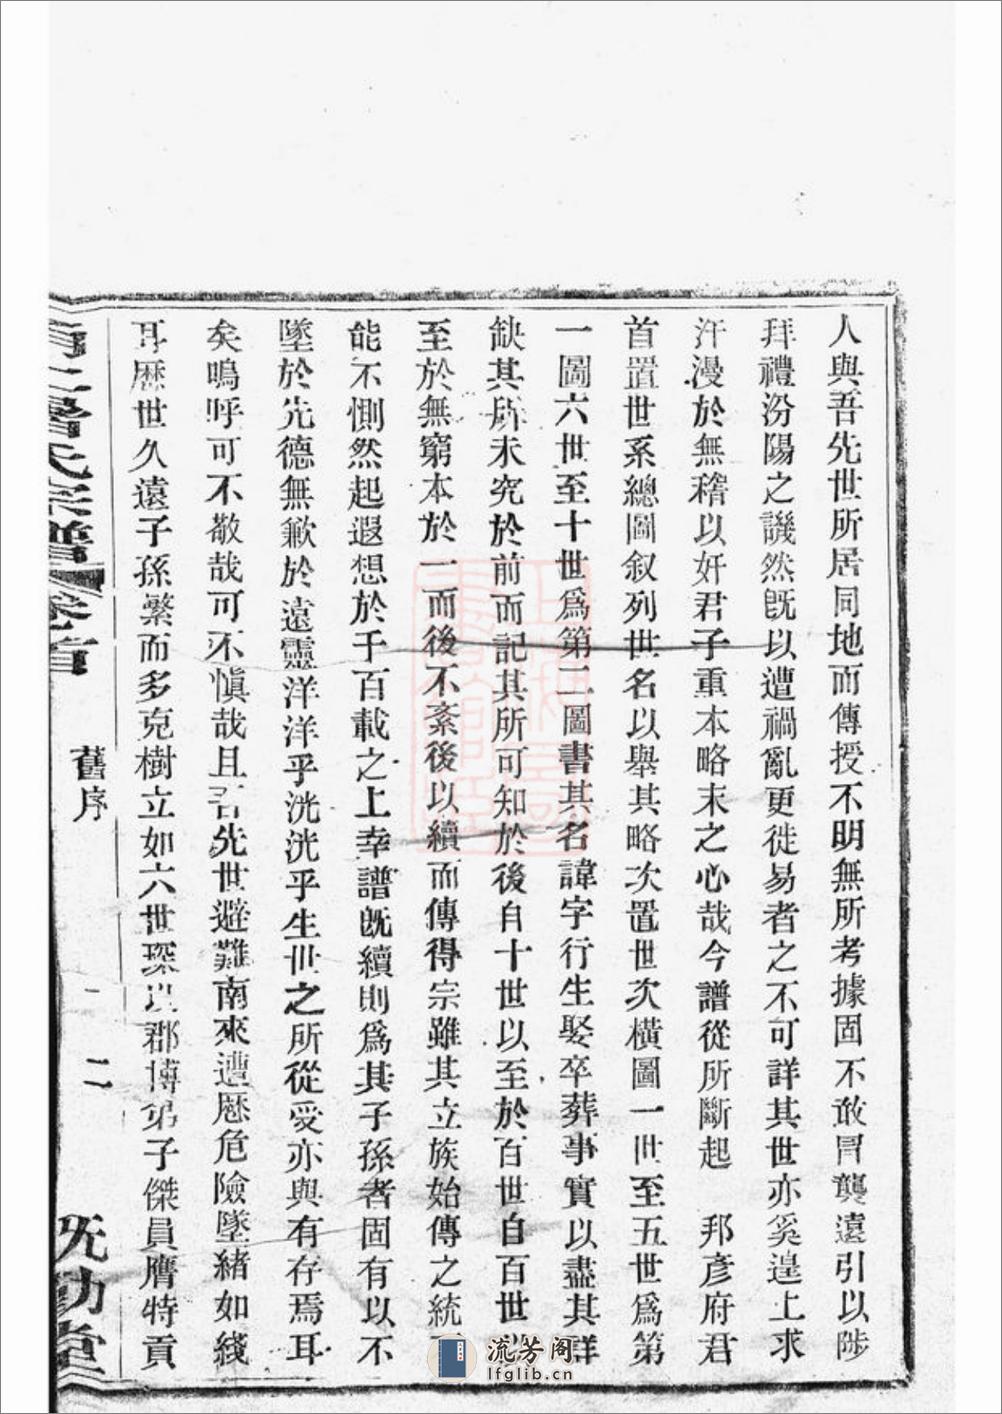 人與吾先世所居同地而傳授不明無所考據固不敢冒襲遠引以陟
拜禮汾陽之譏然既以遭禍亂更徙易者之不可詳其世亦奚遑上求
汗漫於無稽以奸君子重本略末之心哉今譜從所斷起 邦彥府君
首置世系總圖叙列世名以舉其略次置世次橫圖一世至五世爲第
一圖六世至十世爲第二圖書其名諱字行生娶卒葬事實以盡其詳
缺其所未究於前而記其所可知於後自十世以至於百世自百世以
至於無窮本於一而後不紊後以續而傳得宗雖其立族始傳之統
能不惻然起遐想於千百載之上幸譜既續則爲其子孫者固有以不
墜於先德無歉於遠靈洋洋乎洸洸乎生世之所從受亦與有存焉耳
矣嗚呼可不敬哉可不慎哉且吾先世避難南來遭歷危險墜緒如綫
耳歷世久遠子孫繁而多克樹立如六世琛以郡博弟子傑員膺特貢
氏宗譜 卷首
舊序
二
既勤堂
流芳阁
lfglib.cn